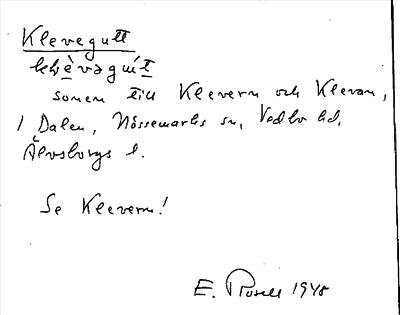 Klevegutt
sonen till Klevern och Klevan,
i Dalen, Nössemarks sn, Vedbo hd,
Älvsborgs l.
Se Klevern!
E. Rosell 1948